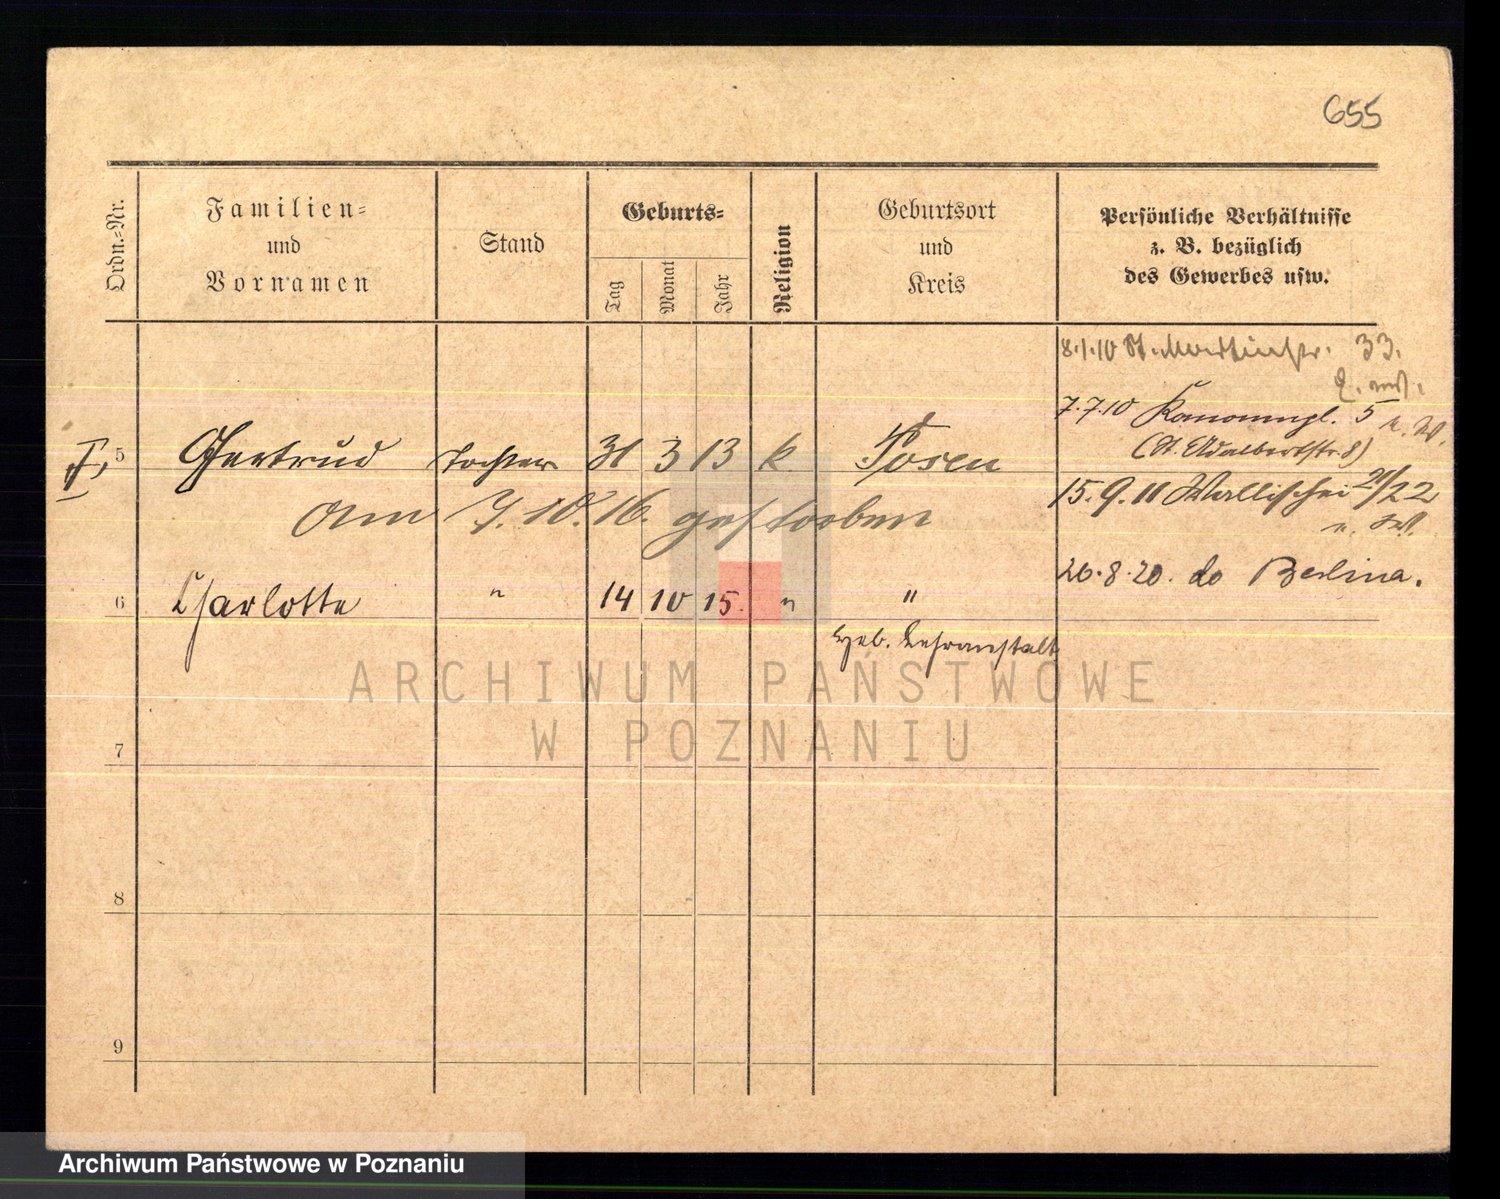 655
Ordn.=Nr.
Familien=
und
Vornamen
Stand
Geburts=
Tag
Monat
Jahr
Religion
Geburtsort
und
Kreis
Persönliche Verhältnisse
z. B. bezüglich
des Gewerbes usw.
8.1.10 St. Martinstr. 33.
7.7.10 5
(St. Adalbertstr 8)
5 Gertrud Tochter 31 3 13 k Posen
15.9.11 Wallischei 21/22
Am 7.10.16. gestorben
26.8.20. do Berlina.
6 Charlotte " 14 10 15. " "
Heb. Lehranstalt
7
8
9
ARCHIWUM PAŃSTWOWE
W POZNANIU
Archiwum Państwowe w Poznaniu